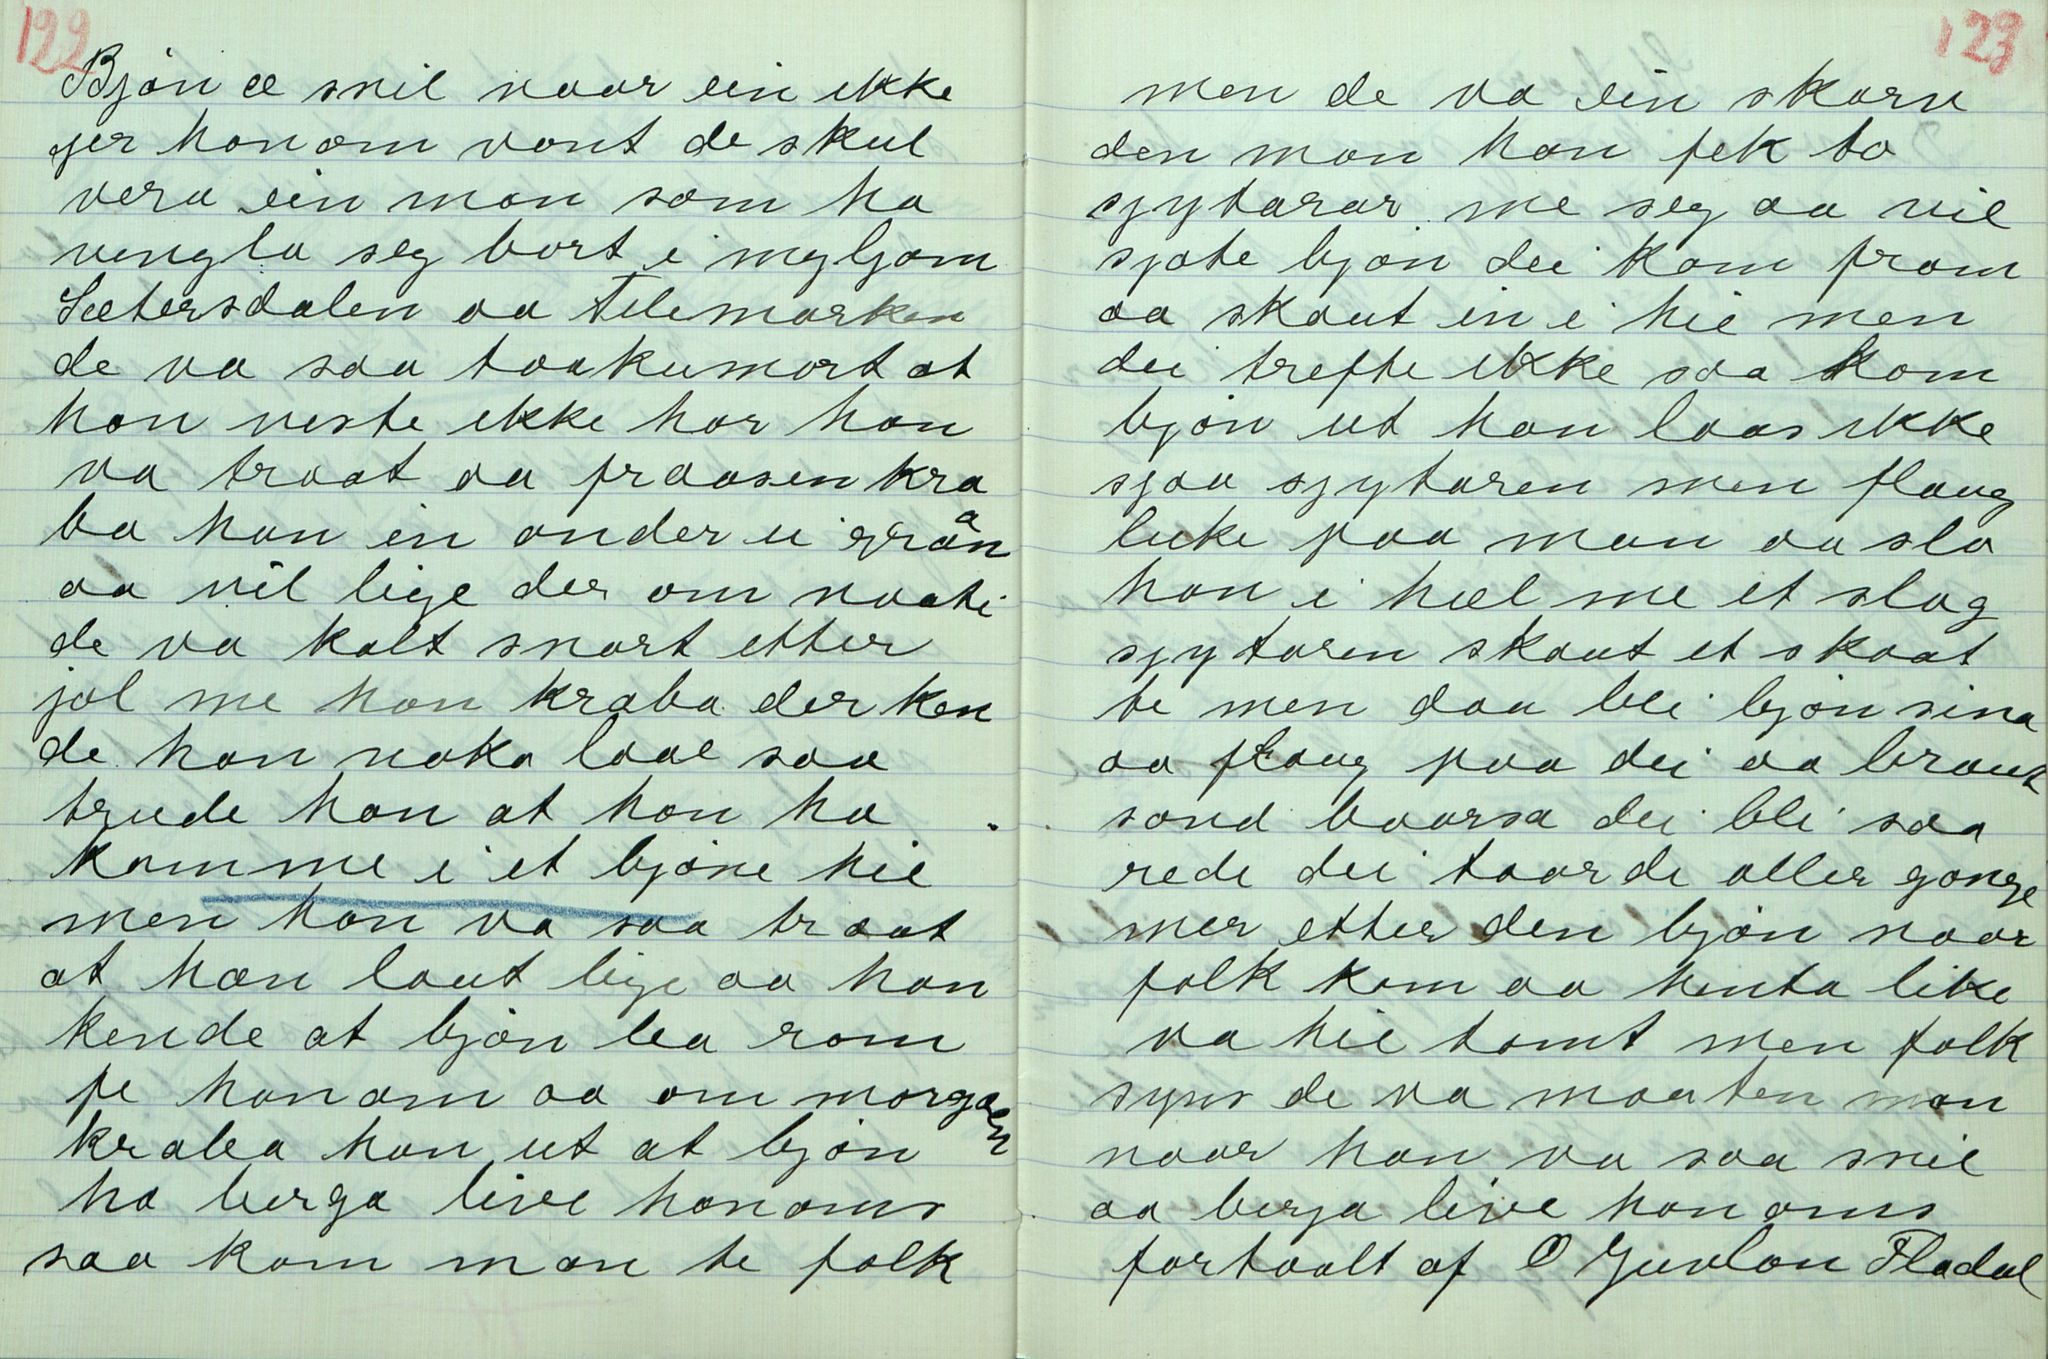 122
Bjøn æ snil naar ein ikke
gjer honom vont de skul
vera ein man som ha
vengla seg bort i myljom
Sætersdalen aa Telemarken
de va saa taakumort at
han veste ikke hor han
va traat aa fraasen kra
ba han in onder ei gran
aa vil lige der om naati
de va kalt snart etter
jol me han kraba der ken
de han noko laae saa
trude han at han ha
komme i et bjøne hie
men han va saa traat
at han laut lige aa han
kende at bjøn lea rom
fe honom aa om morgaen
kraba han ut at bjøn
ha berga live honoms
saa kom man te folk
123
men de va ein skarv
den man han fek to
sjytarar me seg aa vil
sjøte bjøn dei kom fram
aa skaut in i hie men
dei trefte ikke saa kom
bjøn ut han laas ikke
sjaa sjytaren men flaug
beike paa man aa slo
han i hæl me et slag
sjytaren skaut et skaat
te men daa blei bjøn sina
aa flaug paa dei aa braut
sond baarsa dei blei saa
rede dei taarde aller gonge
mer etter den bjøn naar
folk kom aa henta like
va hie tomt men folk
syns de va maaten man
naar han va saa snil
aa berja live honoms
fortaalt af O Gjuvlon Fladal